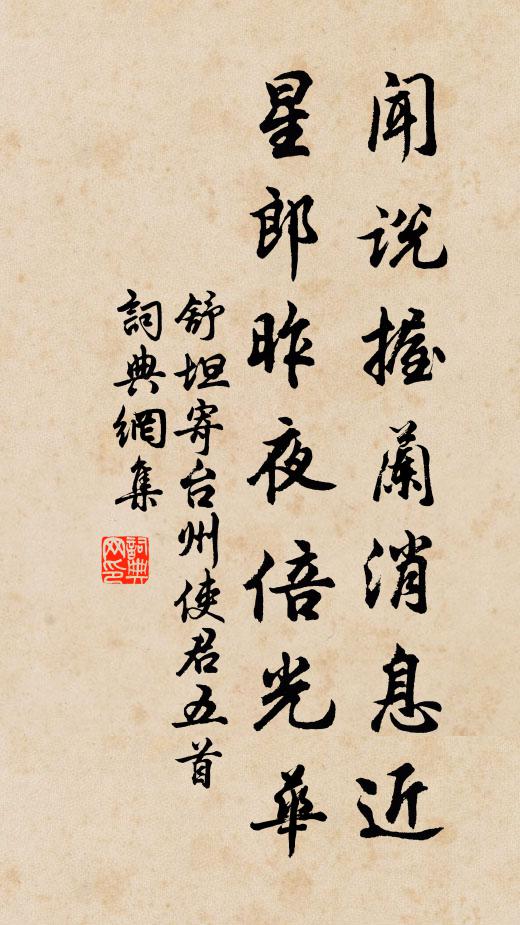 闻说握蘭消息近
星郎昨夜倍光華
舒坦寄台州使君五首
詞典網集
詞典网印